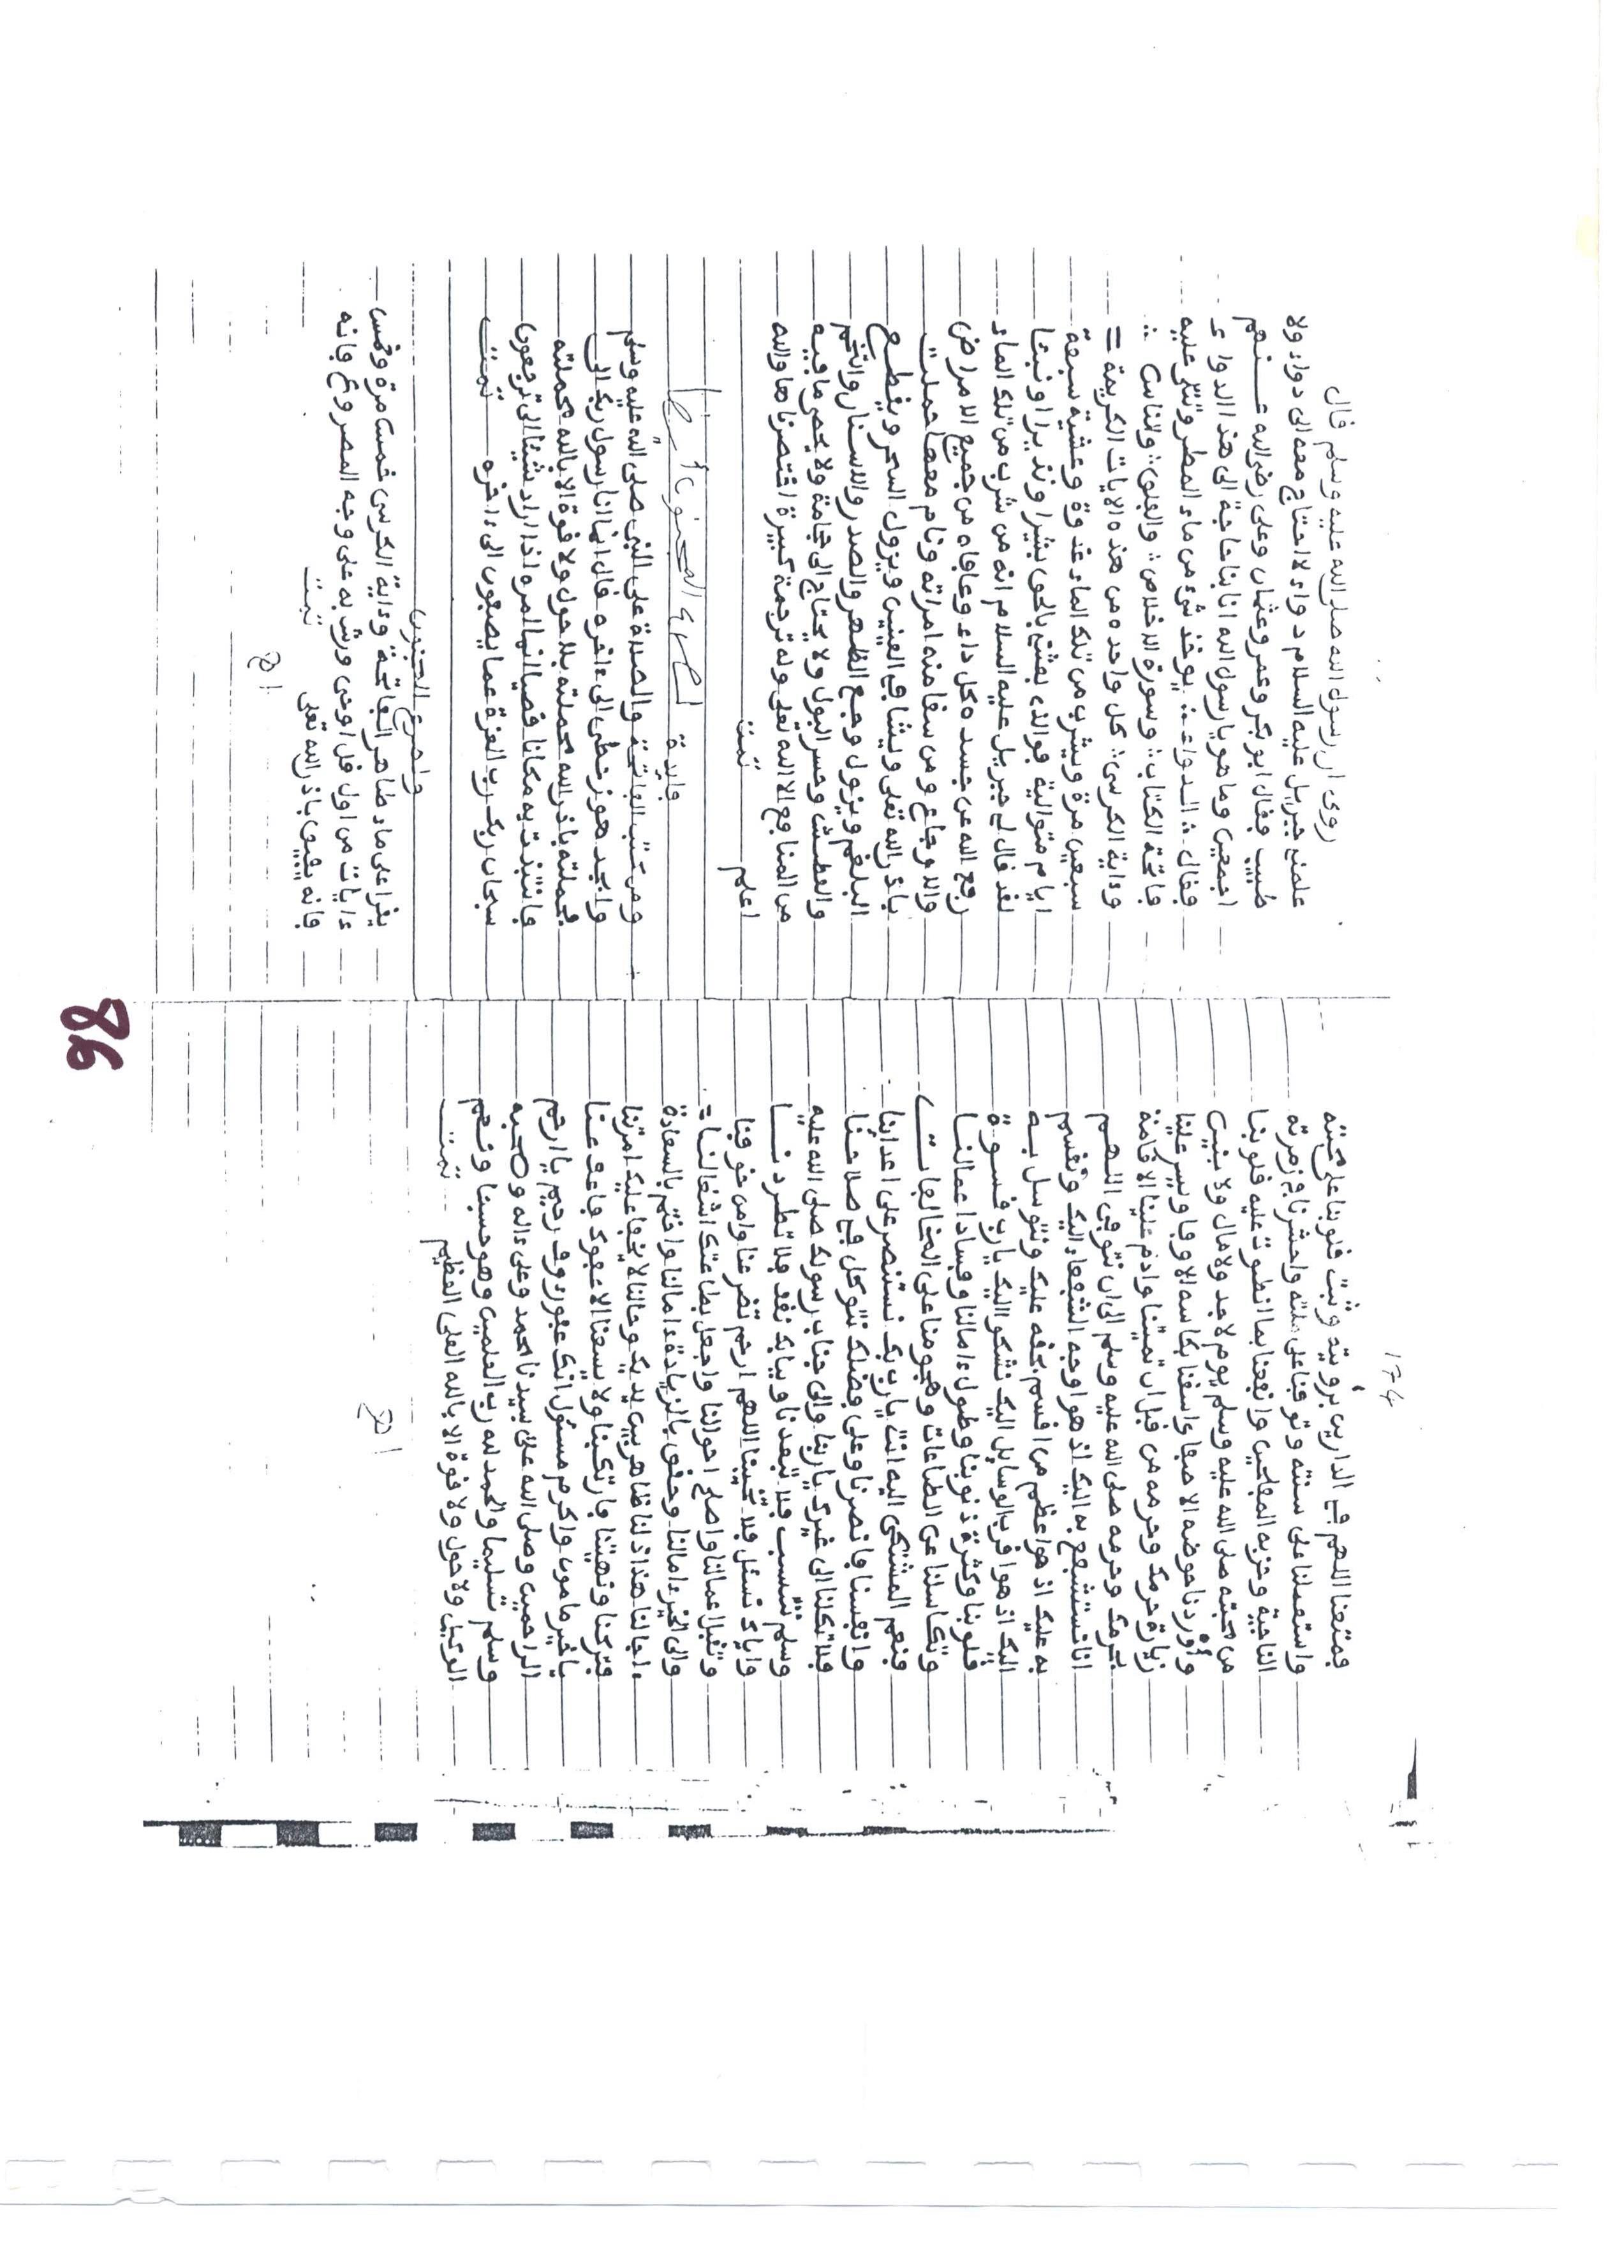 174
فمتعنا اللهم في الدارين برؤيته وثبت قلوبنا على محبته
واستعملنا على سنته وتوفنا على ملته واحشرنا في زمرته
الناجية وحزبه المفلحين وانفعنا بما انطوت عليه قلوبنا
من محبته صلى الله عليه وسلم يوم لا جد ولا مال ولا بنين
وأوردنا حوضه الاصفى واسقنا بكاسه الاوفا ويسر علينا
زيارة حرمك وحرمه من قبل ان تميتنا وادم علينا الاقامة
بحرمك وحرمه صلى الله عليه وسلم الى ان نتوفى اللهم
انا نستشفع به اليك اذ هو اوجه الشفعاء اليك ونقسم
به عليك اذ هو اعظم من اقسم بحقه عليك ونتوسل به
اليك اذ هو اقرب الوسايل اليك نشكوا اليك يا رب قسوة
قلوبنا وكثرة ذنوبنا وطول ءامالنا وفساد اعمالنا
وتكاسلنا عن الطاعات وهجومنا على المخالفات
فنعم المشتكى اليه انت يا رب بك نستنصر على اعدائنا
وانفسنا فانصرنا وعلى فضلك نتوكل في صلاحنا
فلا تكلنا الى غيرك يا ربنا والى جناب رسولك صلى الله عليه
وسلم ننتسب فلا تبعدنا وببابك نقف فلا تطردنا
واياك نسئل فلا تخيبنا اللهم ارحم تضرعنا وامن خوفنا
وتقبل اعمالنا واصلح احوالنا واجعل بطاعتك اشتغالنا
والى الخير ءامالنا وحقق بالزيادة ءامالنا واختم بالسعادة
ءاجالنا هذا ذلنا ظاهر بين يديك وحالنا لا يخفا عليك امرتنا
فتركنا ونهيتنا فارتكبنا ولا يسعنا الا عفوك فاعف عنا
يا خير مامون واكرم مسئول انك غفور رءوف رحيم يا ارحم
الراحمين وصلى الله على سيدنا محمد وعلى ءاله وصحبه
وسلم تسليما والحمد لله رب العلمين وهو حسبنا ونعم
الوكيل ولا حول ولا قوة الا بالله العلي العظيم تمت
اهـ
روى ان رسول الله صلى الله عليه وسلم قال
علمني جبريل عليه السلام دواء لا احتاج معه الى دواء ولا
طبيب فقال ابو بكر وعمر وعثمان وعلي رضي الله عنهم
اجمعين وما هو يا رسول الله انا بنا حاجة الى هذا الدواء
فقال الدواء يوخذ شيء من ماء المطر وتتلى عليه
فاتحة الكتاب وسورة الاخلاص والفلق والناس
وءاية الكرسي كل واحدة من هذه الايات الكريمة
سبعين مرة ويشرب من تلك الماء غدوة وعشية سبعة
ايام متوالية فوالذي بعثني بالحق بشيرا ونذيرا ونبيا
لقد قال لي جبريل عليه السلام انه من شرب من تلك الماء
رفع الله عن جسده كل داء وعافاه من جميع الامراض
والاوجاع ومن سقا منه امراته ونام معها حملت
باذن الله تعلى ويشافي العينين ويزول السحر ويقطع
البلغم ويزول وجع الظهر والصدر والاسنار والتخم
والعطش وحسر البول ولا يحتاج الى حجامة ولا يحصر ما فيه
من المنافع الا الله تعلى وله ترجمة كبيرة اختصرناها والله
اعلم تمت
فايدة لصرع المجنون ايضا
ومن كتب الفاتحة والصلاة على النبي صلى الله عليه وسلم
وابجد هوز حطي الى ءاخره قال انما انا رسول ربك الى
فحملته باذن الله فحملته بلا حول ولا قوة الا بالله فحملته
فانتبذت به مكانا قصيا انما امره اذا اراد شيئا الى ترجعون
سبحان ربك رب العزة عما يصفون الى ءاخره تمت
ولصرع المجنون
يقرا على ماء طاهر الفاتحة وءاية الكرسي خمسا مرة وخمس
ءايات من اول قل اوحي ورش به على وجه المصروع فانه
فانه يفيق باذن الله تعلى تمت
اهـ
86